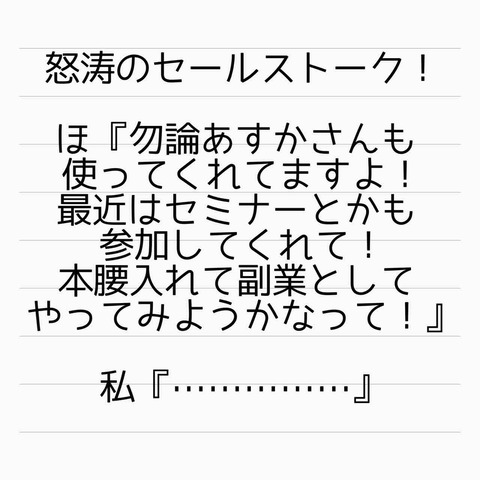 怒涛のセールストーク！
ほ『勿論あすかさんも
使ってくれてますよ！
最近はセミナーとかも
参加してくれて！
本腰入れて副業として
やってみようかなって！』
私『……………』